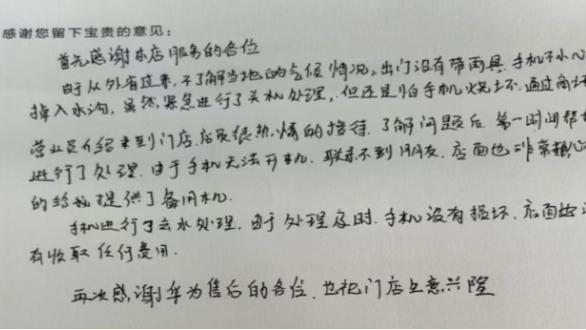 感谢您留下宝贵的意见：
首先感谢本店服务的各位
由于从外省过来，不了解当地的气候情况，出门没有带雨具，手机不小心
掉入水沟，虽然紧急进行了关机处理，但还是怕手机烧坏，通过商场
营业员介绍来到门店，店员很热情的接待，了解问题后，第一时间帮
进行了处理，由于手机无法开机，联系不到朋友，店面也非常
的给我提供了备用机。
手机进行了去水处理，由于处理及时，手机没有损坏，店面也没
有收取任何费用。
再次感谢华为售后的各位，也祝门店生意兴隆